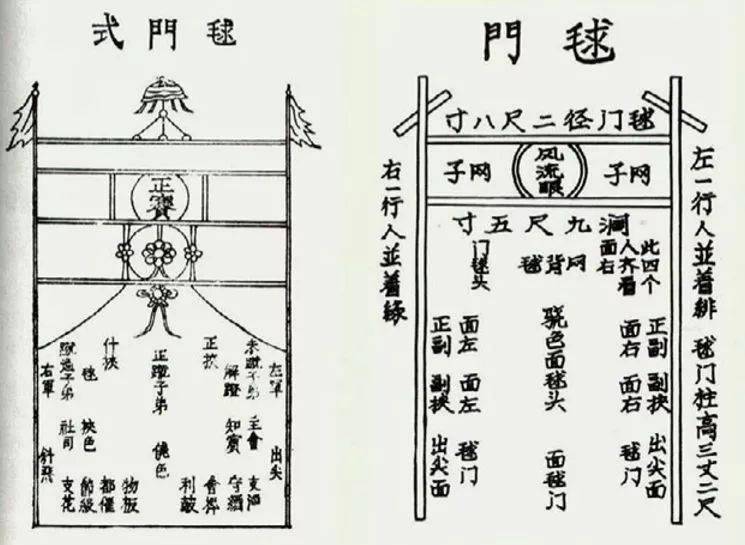 毬門式
正賓
左軍 出尖
主會 支酒
解蹬 知賓 守酒
正挾
會幹
利鼓
正蹴子弟 僥色
什挾
物扳
都催
毬 挾色 節級
蹴過子弟 社司 支花
右軍
毬門
毬门径二尺八寸
网子
风流眼
网子
阔九尺五寸
左一行人並着緋 毬门柱高三丈二尺
此四个人齐着面右
网背毬
门毬头
正副 副挟 出尖面
面右 面右 毬门
骁色面毬头 面毬门
面左 面左 毬门
正副 副挟 出尖面
右一行人並着綠